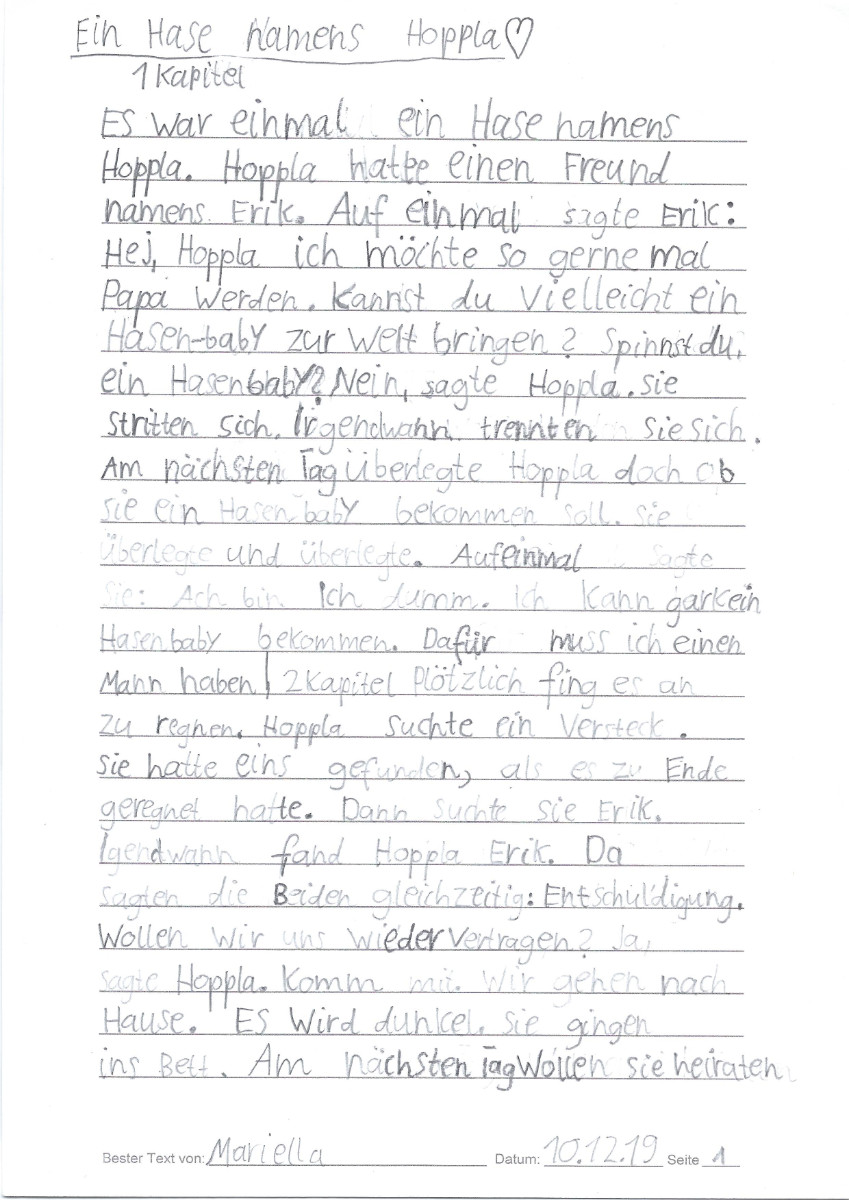 Ein Hase namens Hoppla♡
1 Kapitel
Es war einmal ein Hase namens
Hoppla. Hoppla hatte einen Freund
namens Erik. Auf einmal sagte Erik:
Hej, Hoppla ich möchte so gerne mal
Papa werden. Kannst du vielleicht ein
Hasen-baby zur Welt bringen? Spinnst du,
ein Hasenbaby? Nein, sagte Hoppla. sie
stritten sich. Irgendwann trennten sie sich.
Am nächsten Tag überlegte Hoppla doch ob
sie ein Hasenbaby bekommen soll. sie
überlegte und überlegte. Aufeinmal sagte
sie: Ach bin Ich dumm. Ich kann garkein
Hasenbaby bekommen. Dafür muss ich einen
Mann haben! 2 Kapitel Plötzlich fing es an
zu regnen. Hoppla suchte ein Versteck.
Sie hatte eins gefunden, als es zu Ende
geregnet hatte. Dann suchte sie Erik.
Igendwann fand Hoppla Erik. Da
sagten die Beiden gleichzeitig: Entschuldigung.
Wollen wir uns wieder vertragen? Ja,
sagte Hoppla. Komm mit. Wir gehen nach
Hause. Es wird dunkel. sie gingen
ins Bett. Am nächsten Tag wollen sie heiraten
Bester Text von: Mariella Datum: 10.12.19 Seite 1